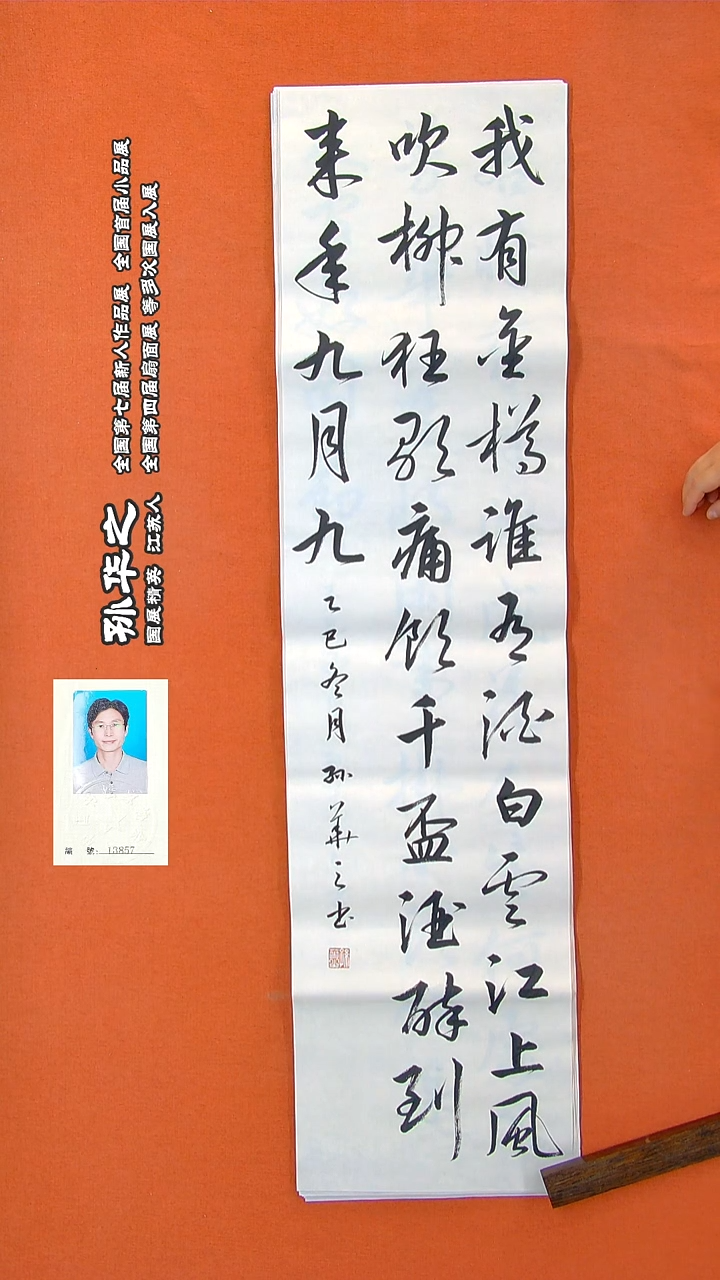 我有金樽誰有酒白雲江上風
吹柳狂歌痛飲千盃酒醉到
来年九月九
乙巳冬月孫華之书
孙华之
国展精英 江苏人
全国第七届新人作品展 全国首届小品展
全国第四届扇面展 等多次国展入展
编號：13857